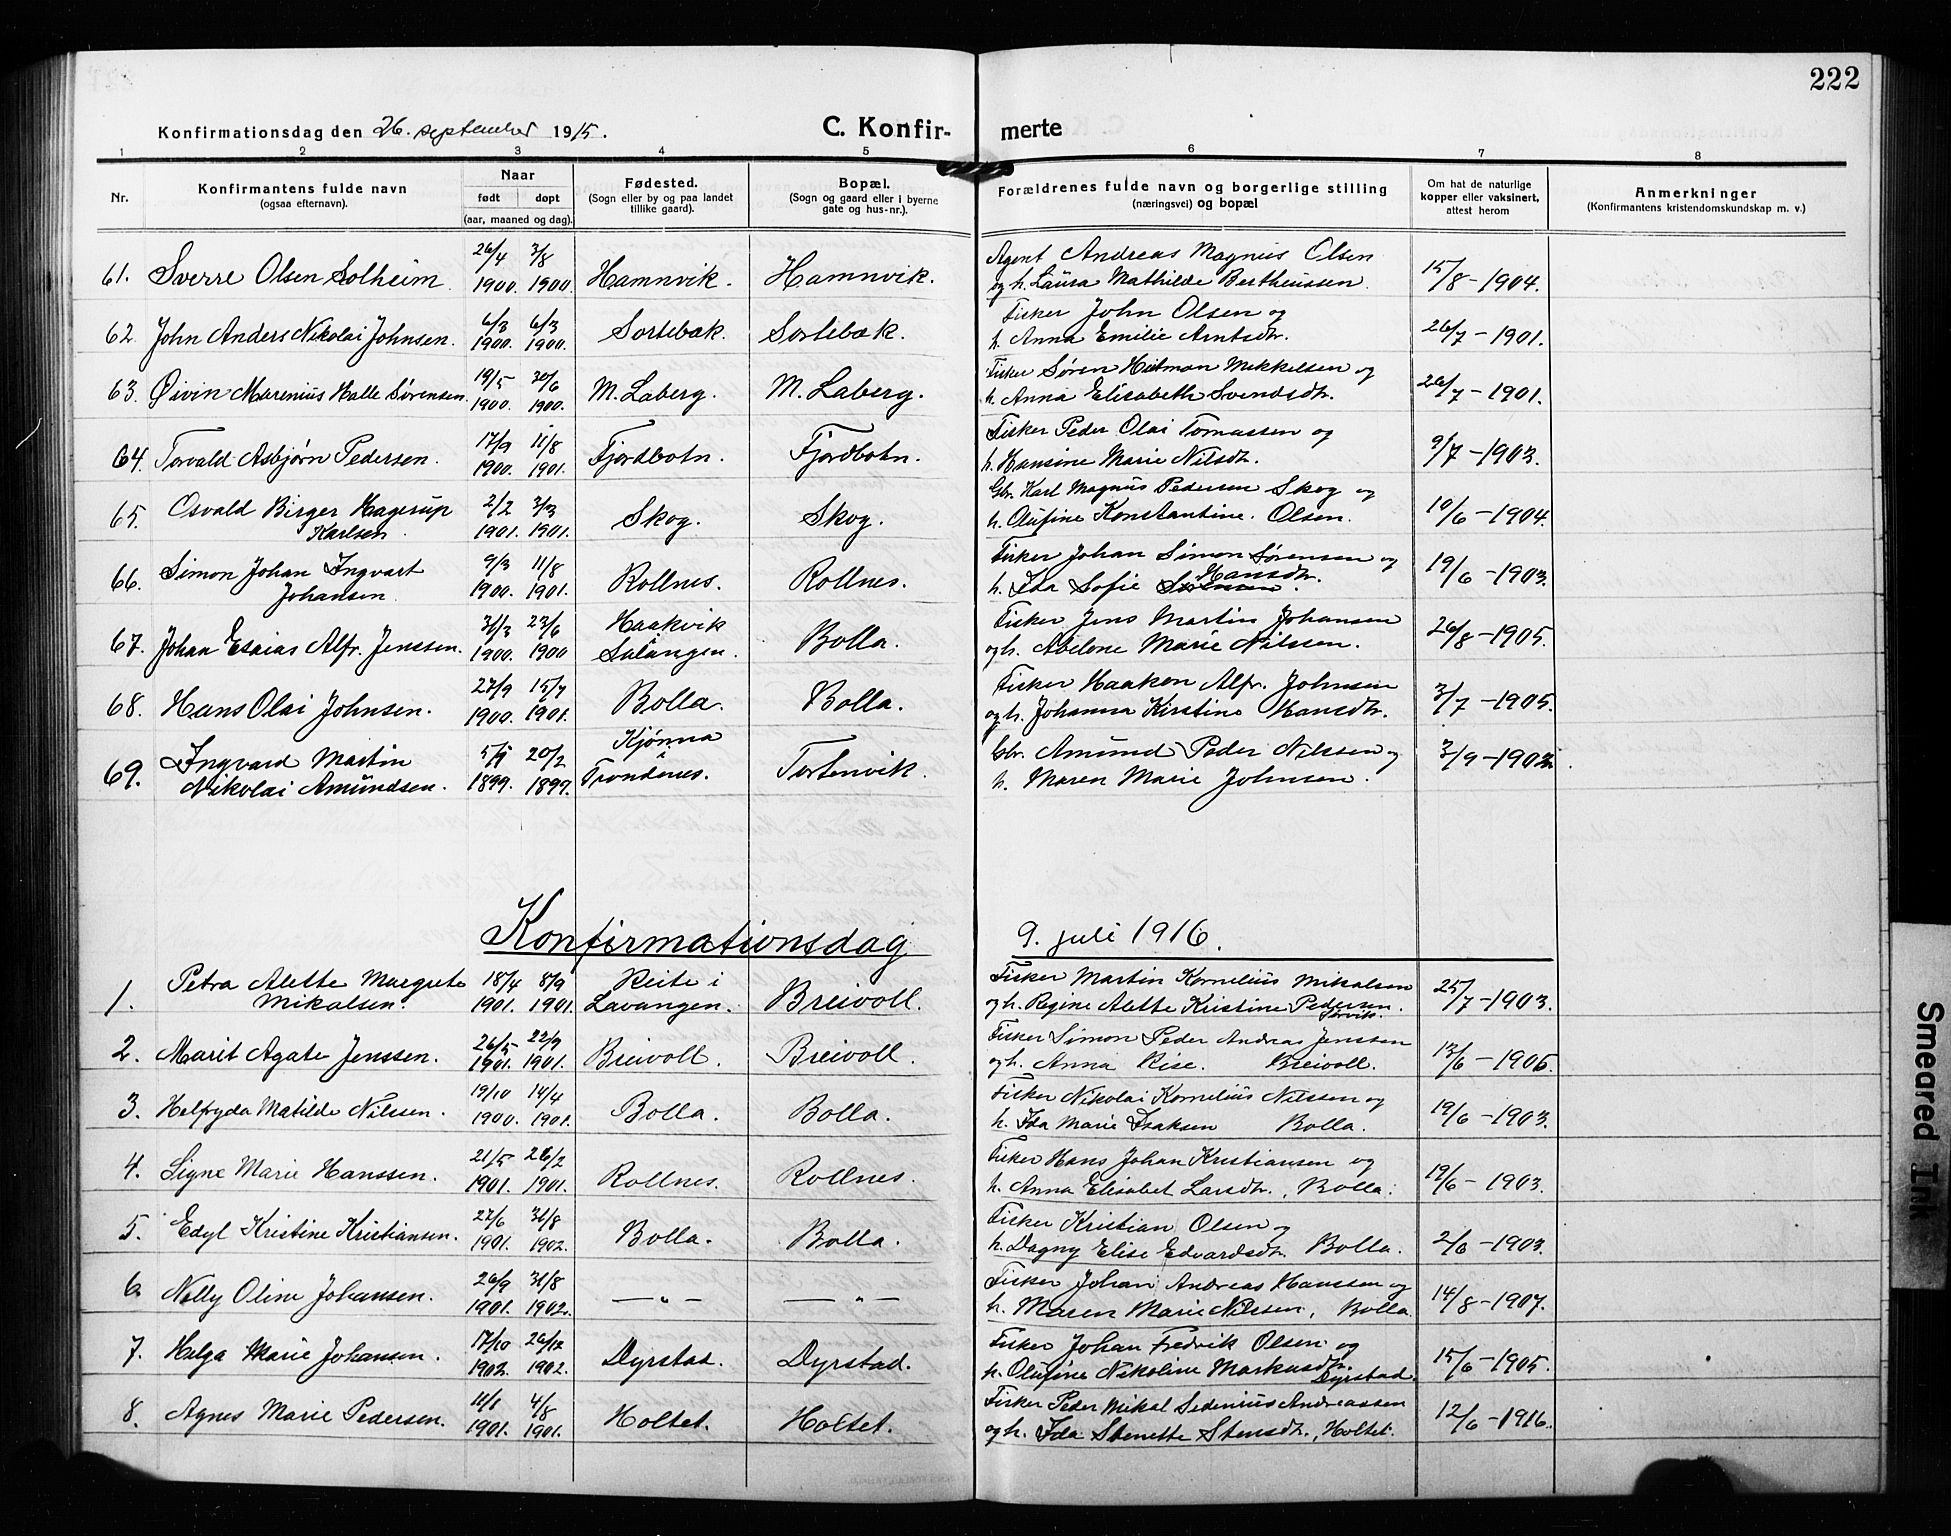 222
Konfirmationsdag den 26. september 1915.
C. Konfir-
merte
1 2 3 4 5 6 7 8
Nr.
Konfirmantens fulde navn
(ogsaa efternavn).
Naar
født døpt
(aar, maaned og dag).
Fødested.
(Sogn eller by og paa landet
tillike gaard).
Bopæl.
(Sogn og gaard eller i byerne
gate og hus-nr.).
Forældrenes fulde navn og borgerlige stilling
(næringsvei) og bopæl
Om hat de naturlige
kopper eller vaksinert,
attest herom
Anmerkninger
(Konfirmantens kristendomskundskap m. v.)
26/4 3/8 Agent Andreas Magnus Olsen
61. Sverre Olsen Solheim. 1900. 1900. Hamnvik. Hamnvik. og h. Laura Mathilde Bertheussen. 15/8-1904.
6/3 6/3 Fisker John Olsen og
62. John Anders Nikolai Johnsen. 1900. 1900. Sortebæk. Sortebæk. h. Anna Emilie Arntsdtr. 26/7-1901.
19/5 30/6 Fisker Søren Hitman Mikkelsen og
63. Øivin Marenius Halle Sørensen. 1900. 1900. M. Laberg. M. Laberg. h. Anna Elisabeth Svendsdtr. 26/7-1901.
17/9 11/8 Fisker Peder Olai Tomassen og
64. Torvald Asbjørn Pedersen. 1900. 1901. Fjordbotn. Fjordbotn. h. Hansine Marie Nilsdtr. 9/7-1903.
Osvald Birger Hagerup 2/2 3/3 Gbr. Karl Magnus Pedersen Skog og
65. Karlsen. 1901. 1901. Skog. Skog. h. Olufine Konstantine. Olsen. 10/6-1904.
Simon Johan Ingvart 9/3 11/8 Fisker Johan Simon Sørensen og
66. Johansen. 1900. 1901. Rollnes. Rollnes. h. Ida Sofie Hansdtr. 19/6-1903.
31/3 23/6 Haakvik Fisker Jens Martin Johansen
67. Johan Esaias Alfr. Jenssen. 1900. 1900 Salangen. Bolla. og h. Abelone Marie Nilssen. 26/8-1905.
27/9 15/7 Fisker Haakon Alfr. Johnsen
68. Hans Olai Johnsen. 1900. 1901. Bolla. Bolla. og h. Johanna Kirstine Hansdtr. 3/7-1905.
Ingvard Martin 20/2 Kjønna Gbr. Amund Peder Nilssen og
69. Nikolai Amundsen. 1899. 1899. Trondenes. Tortenvik. h. Maren Marie Johnsen. 3/9-1902.
Konfirmationsdag 9. juli 1916.
Petra Alette Margrete 18/4 8/9 Reite i Fisker Martin Kornelius Mikalsen
1. Mikalsen. 1901. 1901. Lavangen. Breivoll. og h. Regine Alette Kristine Pedersen. 25/7-1903.
26/5 22/9 Fisker Simon Peder Andreas Jenssen
2. Marit Agate Jenssen. 1901. 1901. Breivoll. Breivoll. og h. Anna Rise. Breivoll. 13/6-1906.
19/10 14/4 Fisker Nikolai Kornelius Nilssen og
3. Helfryda Matilde Nilsen. 1900. 1901. Bolla. Bolla. h. Ida Marie Isaksen Bolla. 19/6-1903.
21/5 26/2 Fisker Hans Johan Kristiansen og
4. Signe Marie Hanssen. 1901. 1901. Rollnes. Rollnes. h. Anna Elisabet Larsdtr., Bolla. 19/6-1903.
27/6 31/8 Fisker Kristian Olsen og
5. Edyl Kristine Kristiansen. 1901. 1902. Bolla. Bolla. h. Dagny Elise Edvardsdtr. Bolla. 2/6-1903.
26/9 31/8 Fisker Johan Andreas Hanssen og
6. Nelly Oline Johansen. 1901. 1902. — " — — " — h. Maren Marie Nilssen, Bolla. 14/8-1907.
17/10 26/12 Fisker Johan Fredrik Olsen og
7. Helga Marie Johansen. 1902. 1902. Dyrstad. Dyrstad. h. Olufine Nikoline Markusdtr. Dyrstad. 15/6-1905.
11/1 4/8 Fisker Peder Mikal Sedenius Andreassen
8. Agnes Marie Pedersen. 1901. 1901. Holtet. Holtet. og h. Ida Stenette Stensdtr., Holtet. 12/6-1916.
Smeared Ink